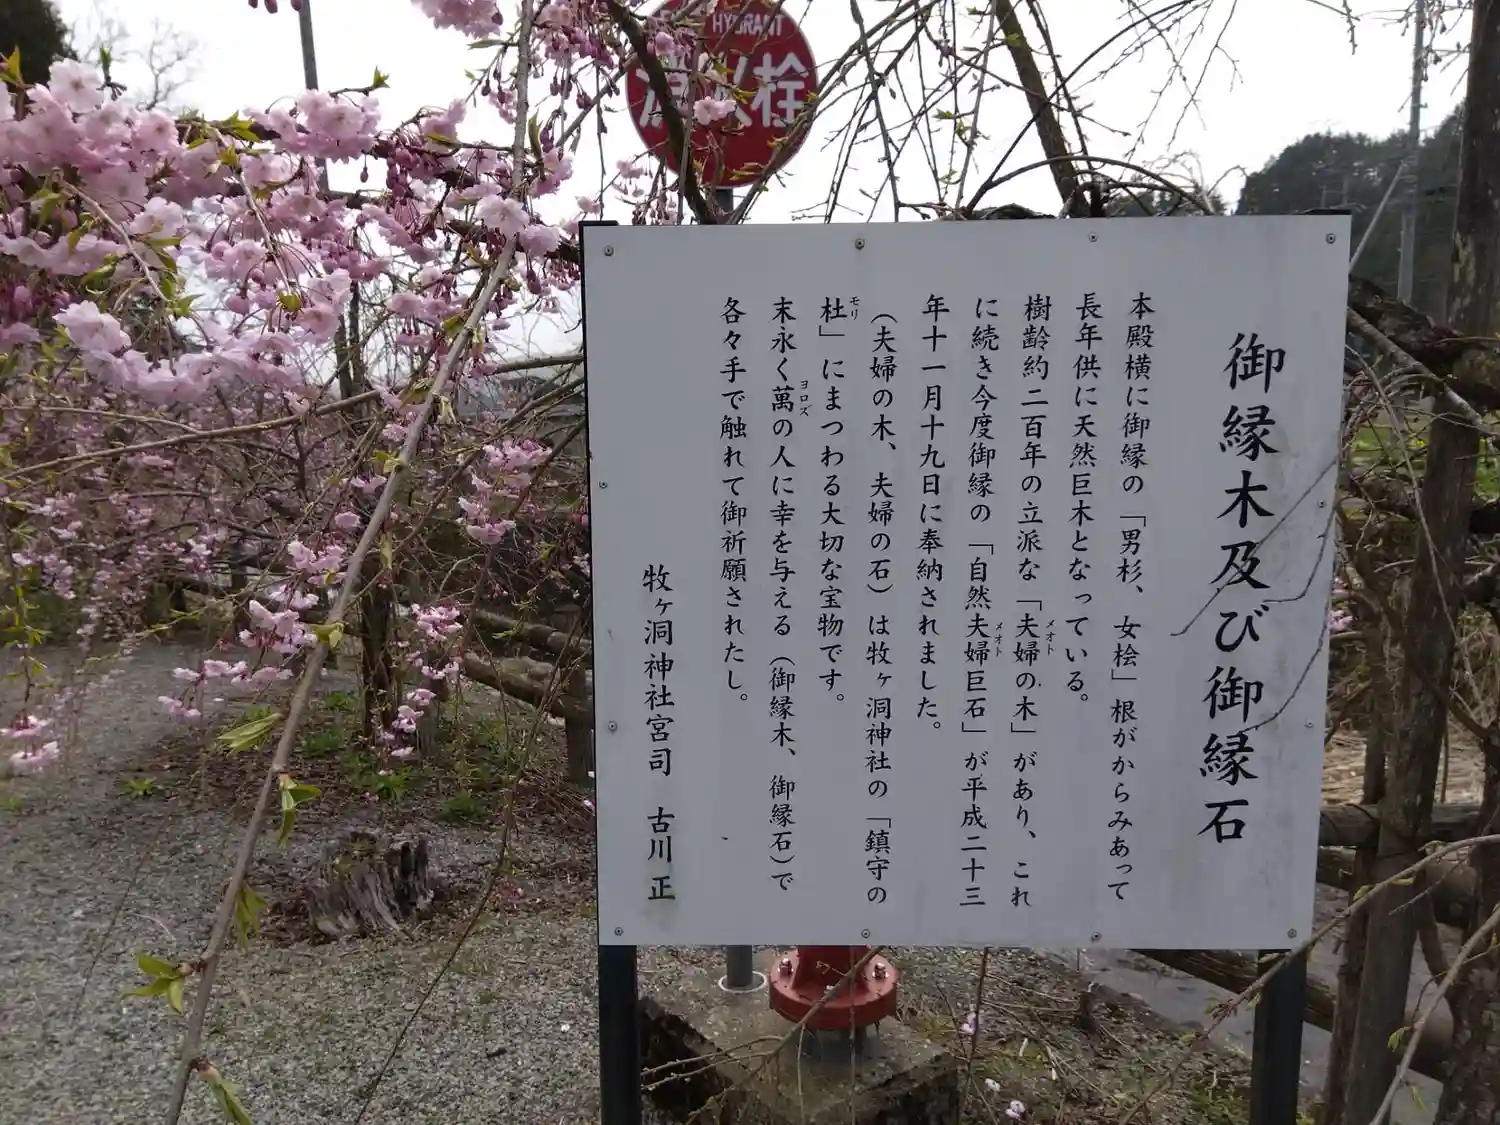 HYDRANT
消火栓
御縁木及び御縁石
本殿横に御縁の「男杉、女桧」根がからみあって
長年供に天然巨木となっている。
樹齢約二百年の立派な「夫婦の木」があり、これ
メオト
に続き今度御縁の「自然夫婦巨石」が平成二十三
メオト
年十一月十九日に奉納されました。
（夫婦の木、夫婦の石）は牧ヶ洞神社の「鎮守の
杜」にまつわる大切な宝物です。
モリ
末永く萬の人に幸を与える（御縁木、御縁石）で
ヨロズ
各々手で触れて御祈願されたし。
牧ヶ洞神社宮司 古川正